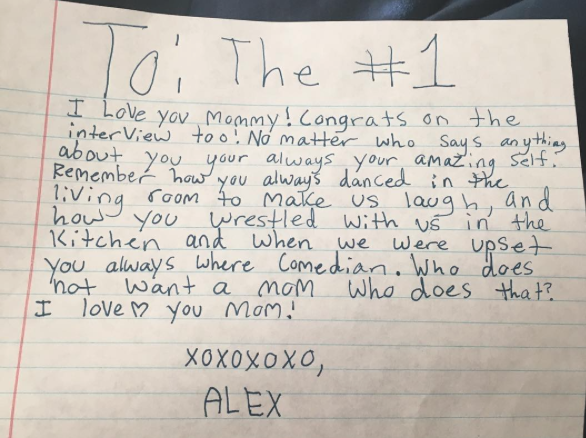 To: The #1
I Love you Mommy! Congrats on the
interview too! No matter who says anything
about you your always your amazing self.
Remember how you always danced in the
living room to make us laugh, and
how you wrestled with us in the
Kitchen and when we were upset
you always where Comedian. Who does
not want a mom who does that?
I love ♡ you Mom!
XOXOXOXO,
ALEX